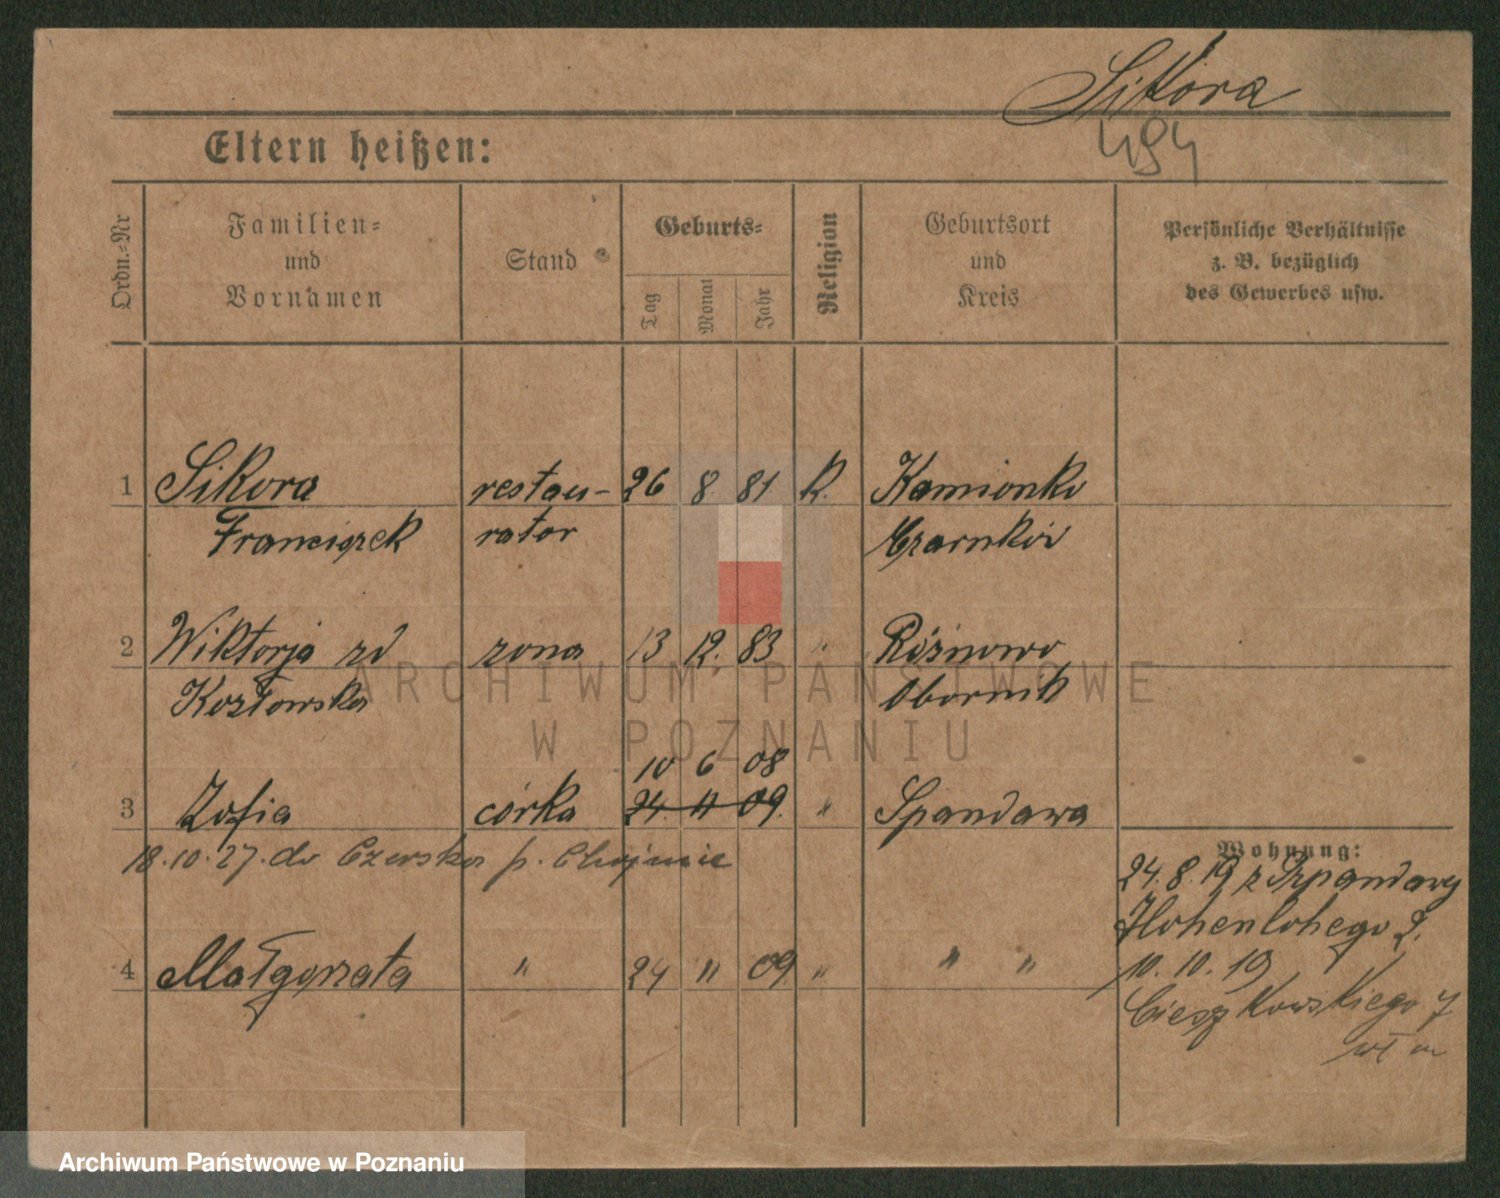 Sikora
494
Eltern heißen:
Ordn.-Nr
Familien=
und
Vornamen
Stand
Geburts=
Tag
Monat
Jahr
Religion
Geburtsort
und
Kreis
Persönliche Verhältnisse
z. B. bezüglich
des Gewerbes usw.
1 Sikora restau- 26 8 81 K. Kamionka
Franciszek rator Czarnków
2 Wiktorja zd żona 13 12. 83 " Rożnowo
Kozłowska Obornik
10 6 08
3 Zofia córka 24. 11 09. " Spandawa
18.10.27. do Czerska p. Chojnic
Wohnung:
24.8.19 z Szpandawy
Hohenlohego 2.
4 Małgorzata " 24 11 09 " " "
10. 10. 19
Cieszkowskiego 7
wł m
ARCHIWUM PAŃSTWOWE
W POZNANIU
Archiwum Państwowe w Poznaniu